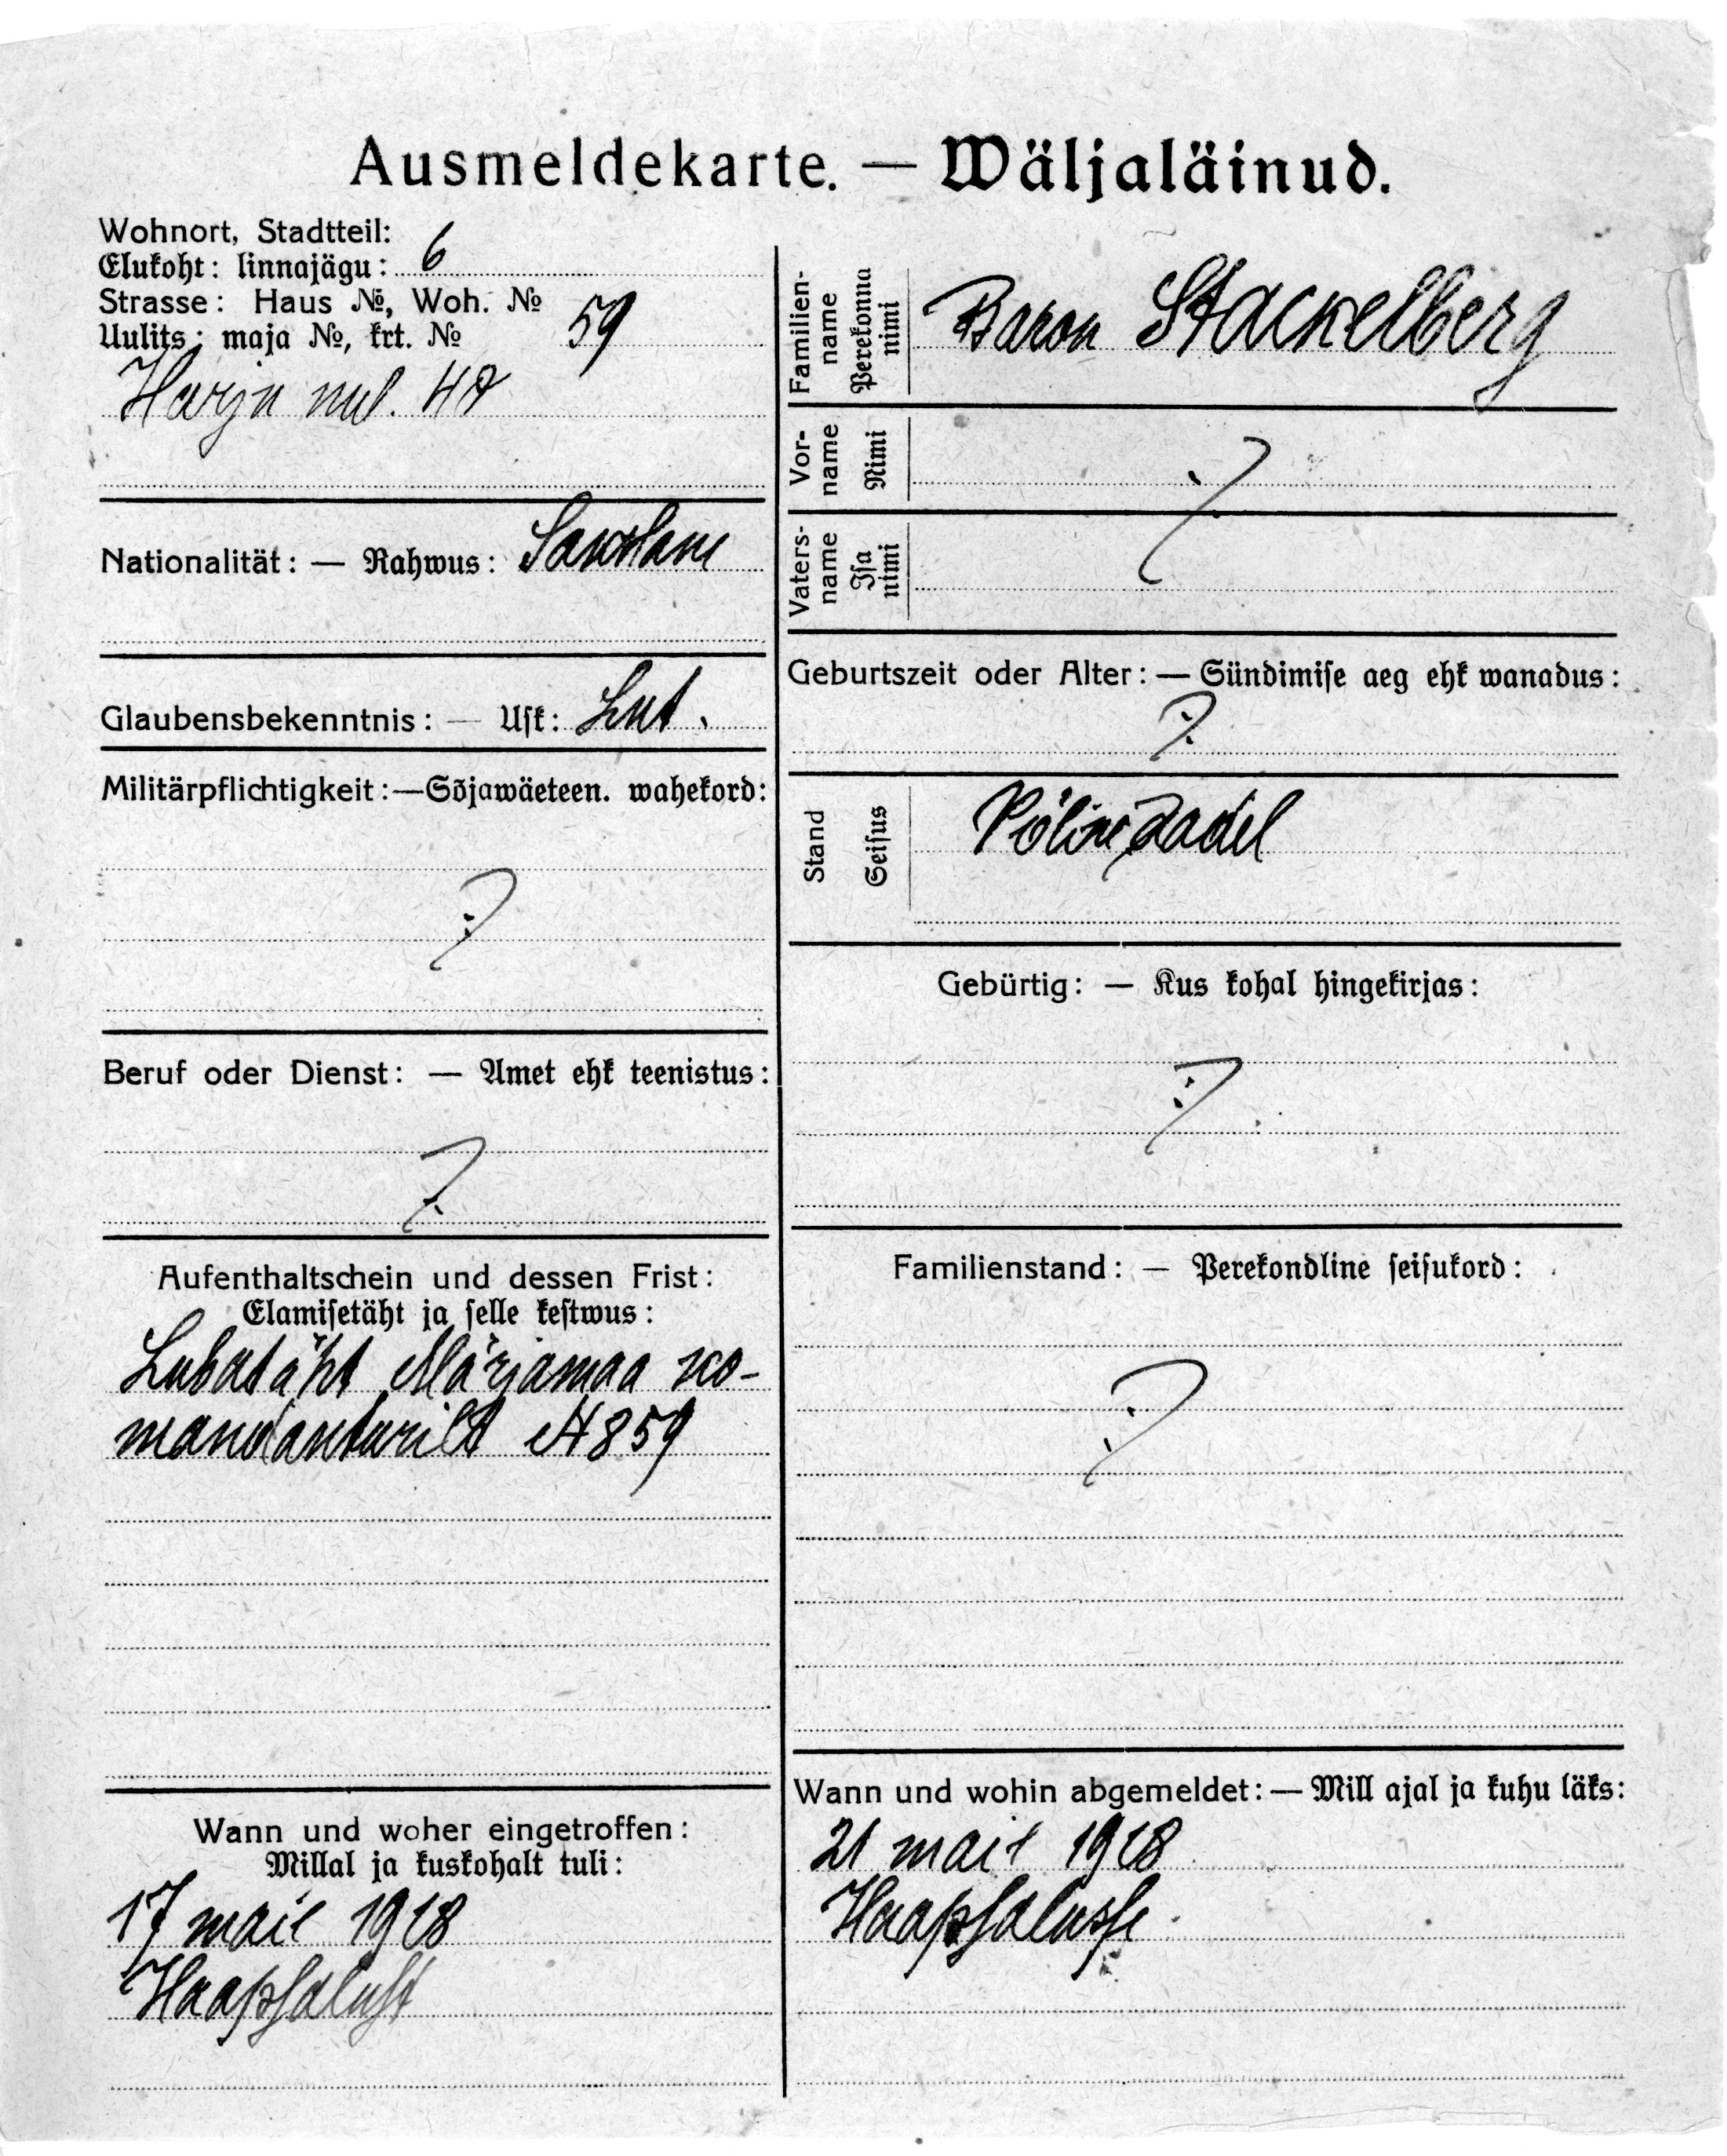 Ausmeldekarte. — Wäljaläinud.
Wohnort, Stadtteil:
Elukoht: linnajägu: 6
Strasse: Haus №, Woh. №
Uulits: maja №, krt. № 59
Harju uul. 47
Nationalität: — Rahwus: Sakslane
Glaubensbekenntnis: — Usk: Lut.
Militärpflichtigkeit:—Sõjawäeteen. wahekord:
?
Beruf oder Dienst: — Amet ehk teenistus:
?
Aufenthaltschein und dessen Frist:
Elamisetäht ja selle kestwus:
Lubatäht Märjamaa ko-
mandanturilt № 859
Wann und woher eingetroffen:
Millal ja kuskohalt tuli:
17 mail 1918
Haapsalust
Familien-
name
Perekonna
nimi
Baron Stackelberg
Vor-
name
Nimi
?
Vaters-
name
Isa
nimi
Geburtszeit oder Alter: — Sündimise aeg ehk wanadus:
?
Stand
Seisus
Põline aadel
Gebürtig: — Kus kohal hingekirjas:
?
Familienstand: — Perekondline seisukord:
?
Wann und wohin abgemeldet: — Mill ajal ja kuhu läks:
21 mail 1918
Haapsalusse